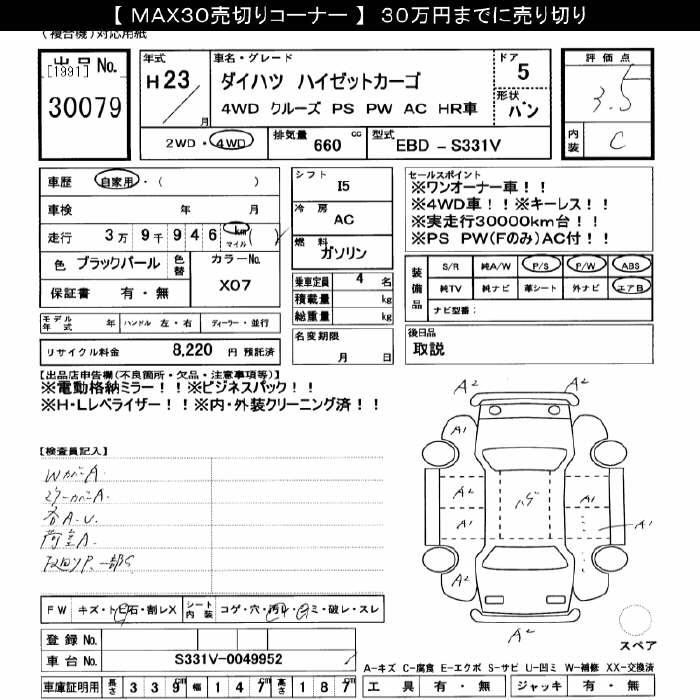 【 MAX30売切りコーナー 】 30万円までに売り切り
(複合機)対応用紙
出品No.
[1991]
30079
年式
H23
月
車名・グレード
ダイハツ ハイゼットカーゴ
4WD クルーズ PS PW AC HR車
ドア
5
形状
バン
2WD・4WD
排気量
660 cc
型式
EBD-S331V
評価点
3.5
内装
C
車歴 自家用・( )
車検 年 月
走行 3万9千946 km マイル ( )
色 ブラックパール 色替
カラーNo.
X07
保証書 有・無
シフト
I5
冷房
AC
燃料
ガソリン
乗車定員 4 名
積載量 kg
総重量 kg
名変期限
月 日
モデル年式 年 ハンドル 左・右 ディーラー・並行
リサイクル料金 8,220 円 預託済
セールスポイント
※ワンオーナー車!!
※4WD車!!※キーレス!!
※実走行30000km台!!
※PS PW(Fのみ)AC付!!
装備品
S/R 純A/W P/S P/W ABS
純TV 純ナビ 革シート 外ナビ エアB
ナビ型番:
後日品
取説
【出品店申告欄(不良箇所・欠品・注意事項等)】
※電動格納ミラー!!※ビジネスパック!!
※H・Lレベライザー!!※内・外装クリーニング済!!
【検査員記入】
Wカバー A.
ミラーカバー A.
各A.U.
荷室A.
A2
A2
A1
A1
A2
A2
ハゲ
A1
A1
A1
A2
A2
FW キズ・トビ石・割レX
シート内装 コゲ・穴・汚レ・シミ・破レ・スレ
登録No.
車台No. S331V-0049952
車庫証明用 長さ 339 cm 幅 147 cm 高さ 187 cm
スペア
A-キズ C-腐食 E-エクボ S-サビ U-凹ミ W-補修 XX-交換済
工具 有・無 ジャッキ 有・無